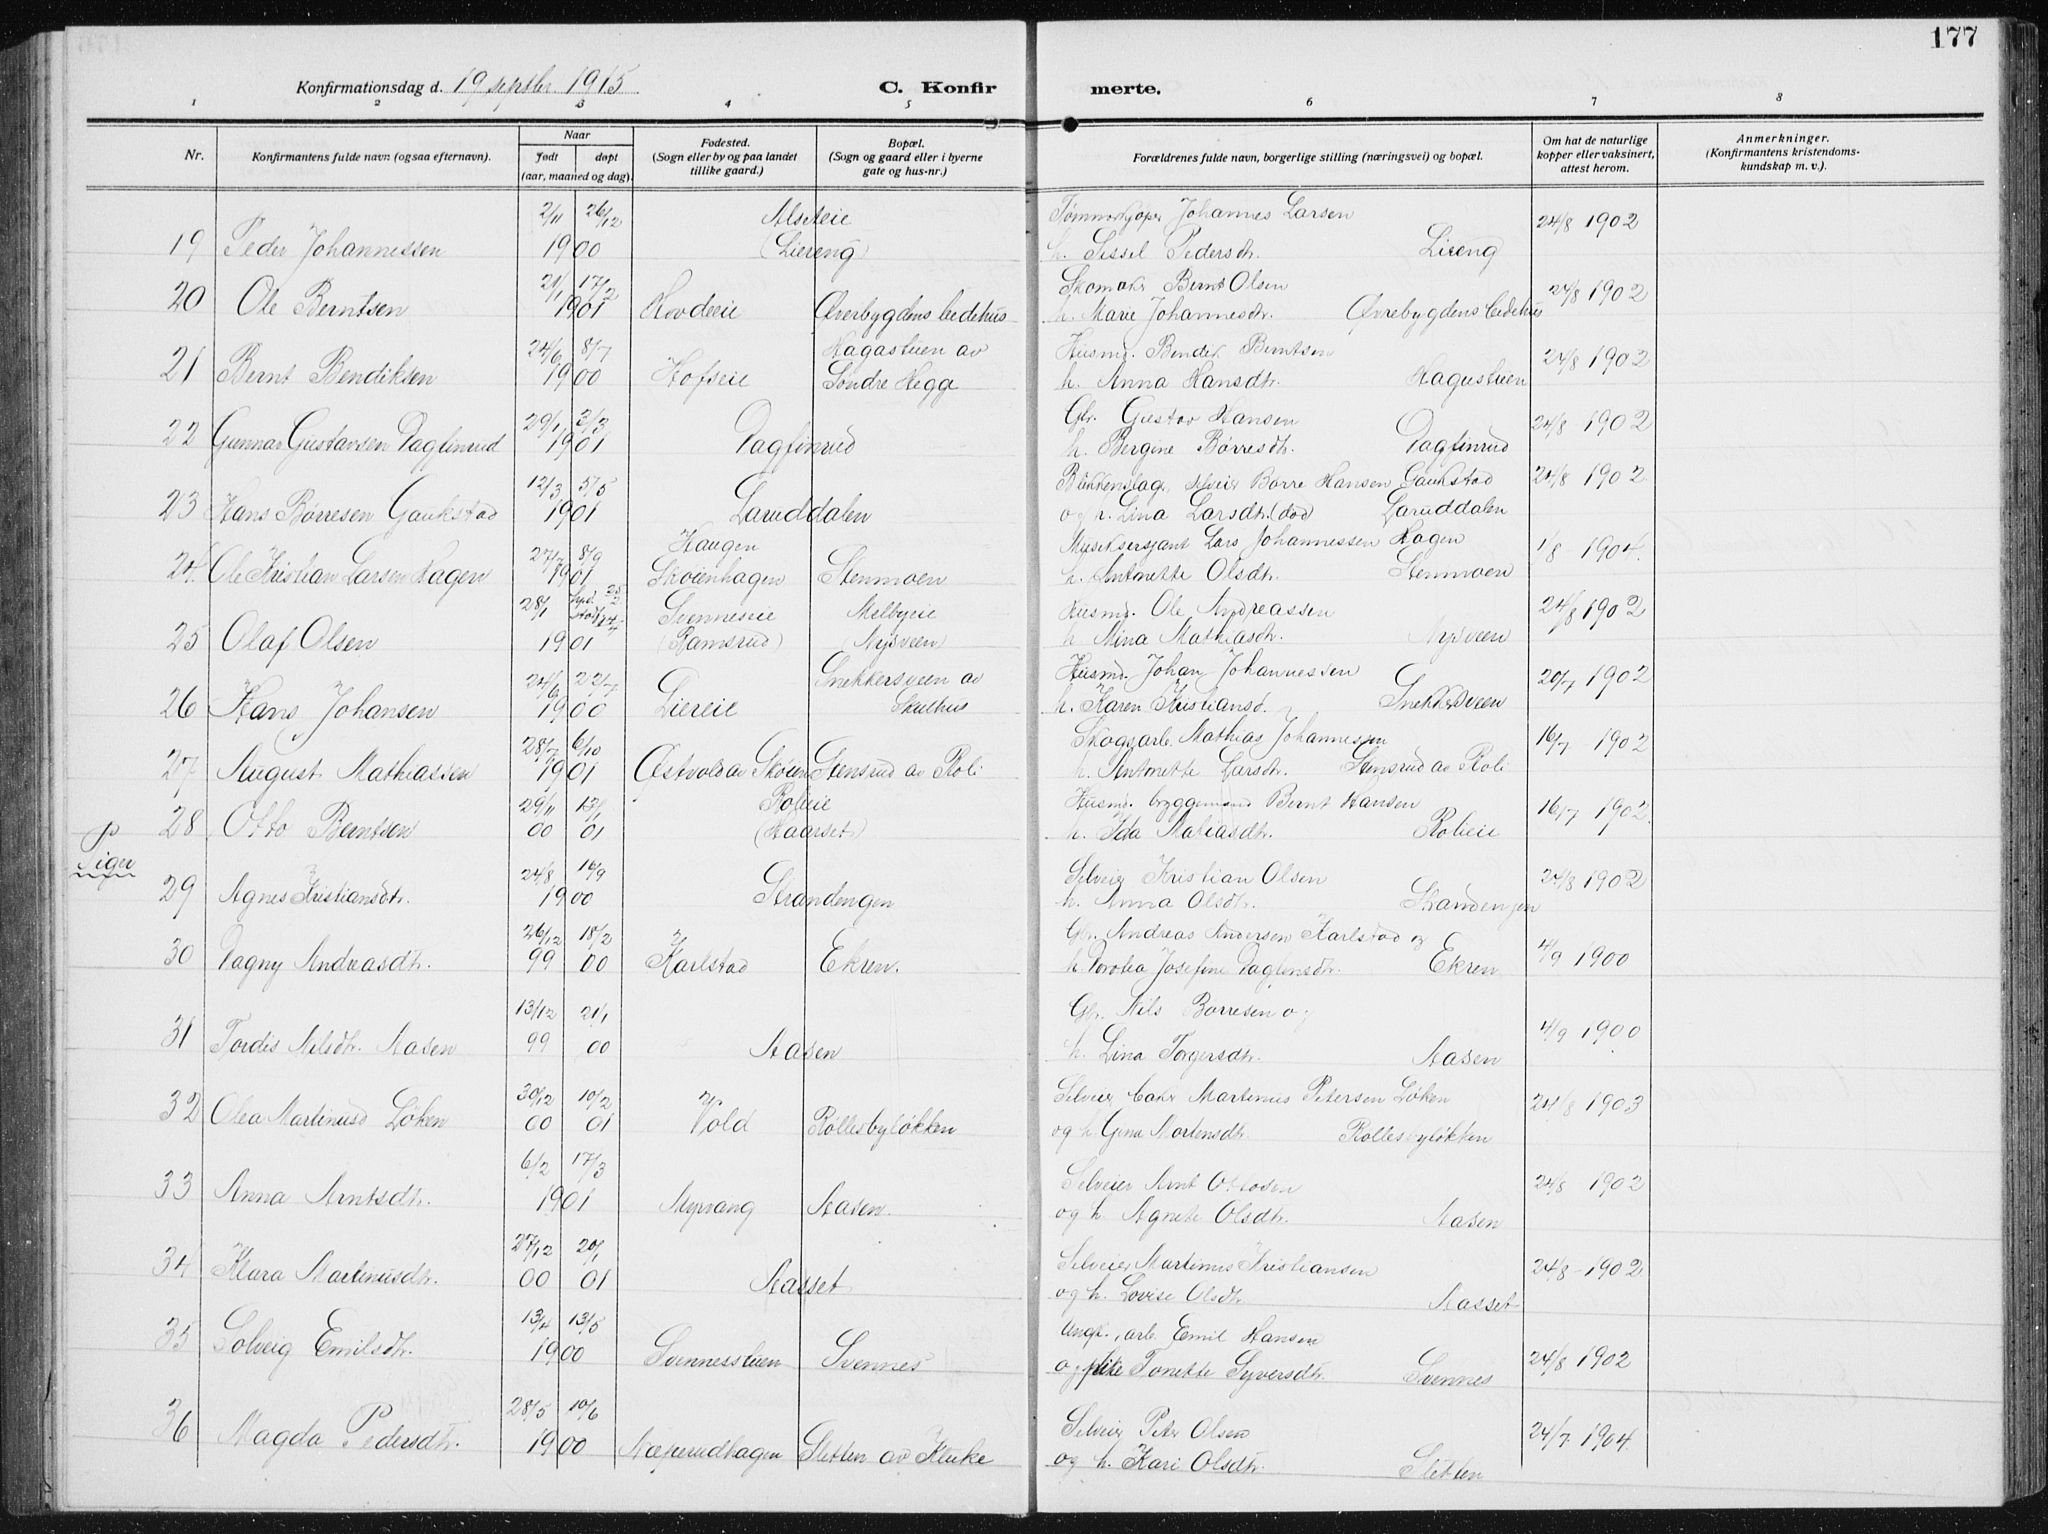 177
Konfirmationsdag d. 19 septbr. 1915. C. Konfirmerte.
1 2 3 4 5 6 7 8
Nr. Konfirmantens fulde navn (ogsaa efternavn). Naar født døpt (aar, maaned og dag). Fødested. (Sogn eller by og paa landet tillike gaard.) Bopæl. (Sogn og gaard eller i byerne gate og hus-nr.) Forældrenes fulde navn, borgerlige stilling (næringsvei) og bopæl. Om hat de naturlige kopper eller vaksinert, attest herom. Anmerkninger. (Konfirmantens kristendomskundskap m. v.).
2/11 26/12 Alseteie Johannes Larsen 24/8 1902
19 Peder Johannessen 1900 (Liereng) h. Sissel Pedersdtr. Liereng
21/1 17/2 Skomaker Bernt Olsen 24/8 1902
20 Ole Berntsen 1901 Hovdeeie Øverbygdens bedehus h. Marie Johannesdtr. Øvrebygdens bedehus
24/6 8/7 Hagastuen av Husmd. Bendik Berntsen 24/8 1902
21 Bernt Bendiksen 1900 Hofseie Søndre Hegge h. Anna Hansdtr. Hagastuen
29/1 3/3 Gbr. Gustav Hansen 24/8 1902
22 Gunnar Gustavsen Dagfinrud 1901 Dagfinrud h. Bergine Børresdtr. Dagfinrud
12/3 5/5 Blikkenslag., selveier Børre Hansen Gaukstad 24/8 1902
23 Hans Børresen Gaukstad 1901 Laruddalen og h. Lina Larsdtr. (død) Laruddalen
27/7 8/9 Haugen Musiksersjant Lars Johannessen Hagen 1/8 1904.
24. Ole Kristian Larsen Hagen 1901 Skøienhagen Stenmoen h. Antonette Olsdtr. Stenmoen
28/1 Svenneseie Melbyeie Husmd. Ole Andreassen 24/8 1902
25 Olaf Olsen 1901 (Ramsrud) (Nysveen) h. Mina Mathiasdtr. Nysveen
24/6 22/7 Snekkersveen av Husmd. Johan Johannessen 20/7 1902
26 Hans Johansen 1900 Liereie Skulhus h. Karen Kristiansd. Snekkersveen
28/7 6/10 Skogsarb. Mathias Johannessen 16/7 1902
27 August Mathiassen 1901 Østvold av Skøien Stensrud av Roli h. Antonette Larsdtr. Stensrud av Roli
29/11 13/1 Rolieie Husmd. byggemand Bernt Hansen 16/7 1902.
28 Otto Berntsen 00 01 (Haarset) h. Ida Matiasdtr. Rolieie
P
Piger
24/8 16/9 Selveier Kristian Olsen 24/8 1902
29 Agnes Kristiansdtr. 1900 Strandengen h. Anna Olsdtr. Strandengen
26/12 18/2 Gbr. Andreas Andersen Karlstad og 4/9 1900
30 Dagny Andreasdtr. 99 00 Karlstad Ekren. h. Dorotea Josefine Dagfinsdtr. Ekren
13/12 21/1 Gbr. Nils Børresen og 4/9 1900
31 Tordis Nilsdtr. Aasen 99 00 Aasen h. Lina Torgersdtr. Aasen
30/12 10/2 Selveier Martinus Petersen Løken 24/8 1903
32 Olea Martinusd Løken 00 01 Vold Røllesbyløkken og h. Gina Mortensdtr. Røllesbyløkken
6/2 17/3 Selveier Arnt Ottosen 24/8 1902
33 Anna Arntsdtr. 1901 Nyvang Aasen. og h. Agnete Olsdtr. Aasen
27/12 20/1 Selveier Martinus Kristiansen 24/8 - 1902
34 Klara Martinusdtr. 00 01 Aasset og h. Lovise Olsdtr Aasset
13/4 13/5 Ungk., arb. Emil Hansen 24/8 1902
35 Solveig Emilsdtr. 1900 Svennesstuen Svennes og pike Tonette Syversdtr. Svennes
28/5 10/6 Selveier Peter Olsen 24/7 1904.
36 Magda Pedersdtr. 1900 Næperudhagen Sletten av Kluke og h. Kari Olsdtr. Sletten